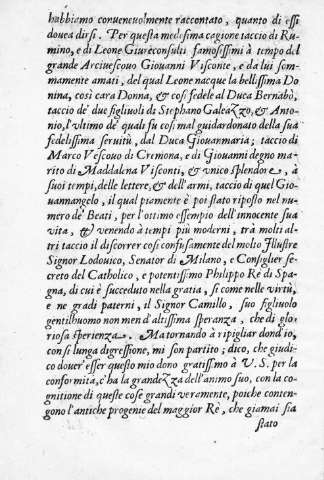 habbiamo conueneuolmente raccontato, quanto di essi
douea dirsi. Per questa medesima cagione taccio di Ru-
mino, e di Leone Giureconsulti famosissimi à tempo del
grande Arciuescouo Giouanni Visconte, e da lui som-
mamente amati, del qual Leone nacque la bellissima Do
nina, così cara Donna, & così fedele al Duca Bernabò,
taccio de' due figliuoli di Stephano Galeazzo, & Anto-
nio, l'vltimo de' quali fù così mal guidardonato della sua
fedelissima seruitù, dal Duca Giouanmaria; taccio di
Marco Vescouo di Cremona, e di Giouanni degno ma-
rito di Maddalena Visconti, & vnico splendore, à
suoi tempi, delle lettere, & dell'armi, taccio di quel Gio-
uannangelo, il qual piamente è poi stato riposto nel nu-
mero de' Beati, per l'ottimo essempio dell'innocente sua
vita, & venendo à tempi più moderni, trà molti al-
tri taccio il discorrer così confusamente del molto Illustre
Signor Lodouico, Senator di Milano, e Consiglier se-
creto del Catholico, e potentissimo Philippo Rè di Spa-
gna, di cui è succeduto nella gratia, si come nelle virtù,
e ne gradi paterni, il Signor Camillo, suo figliuolo
gentilhuomo non men d'altissima speranza, che di glo-
riosa sperienza. Ma tornando à ripigliar dond'io,
con si lunga digressione, mi son partito; dico, che giudi-
co douer'esser questo mio dono gratissimo à V. S. per la
conformità, c'hà la grandezza dell'animo suo, con la co-
gnitione di queste cose grandi veramente, poiche conten-
gono l'antiche progenie del maggior Rè, che giamai sia
stato